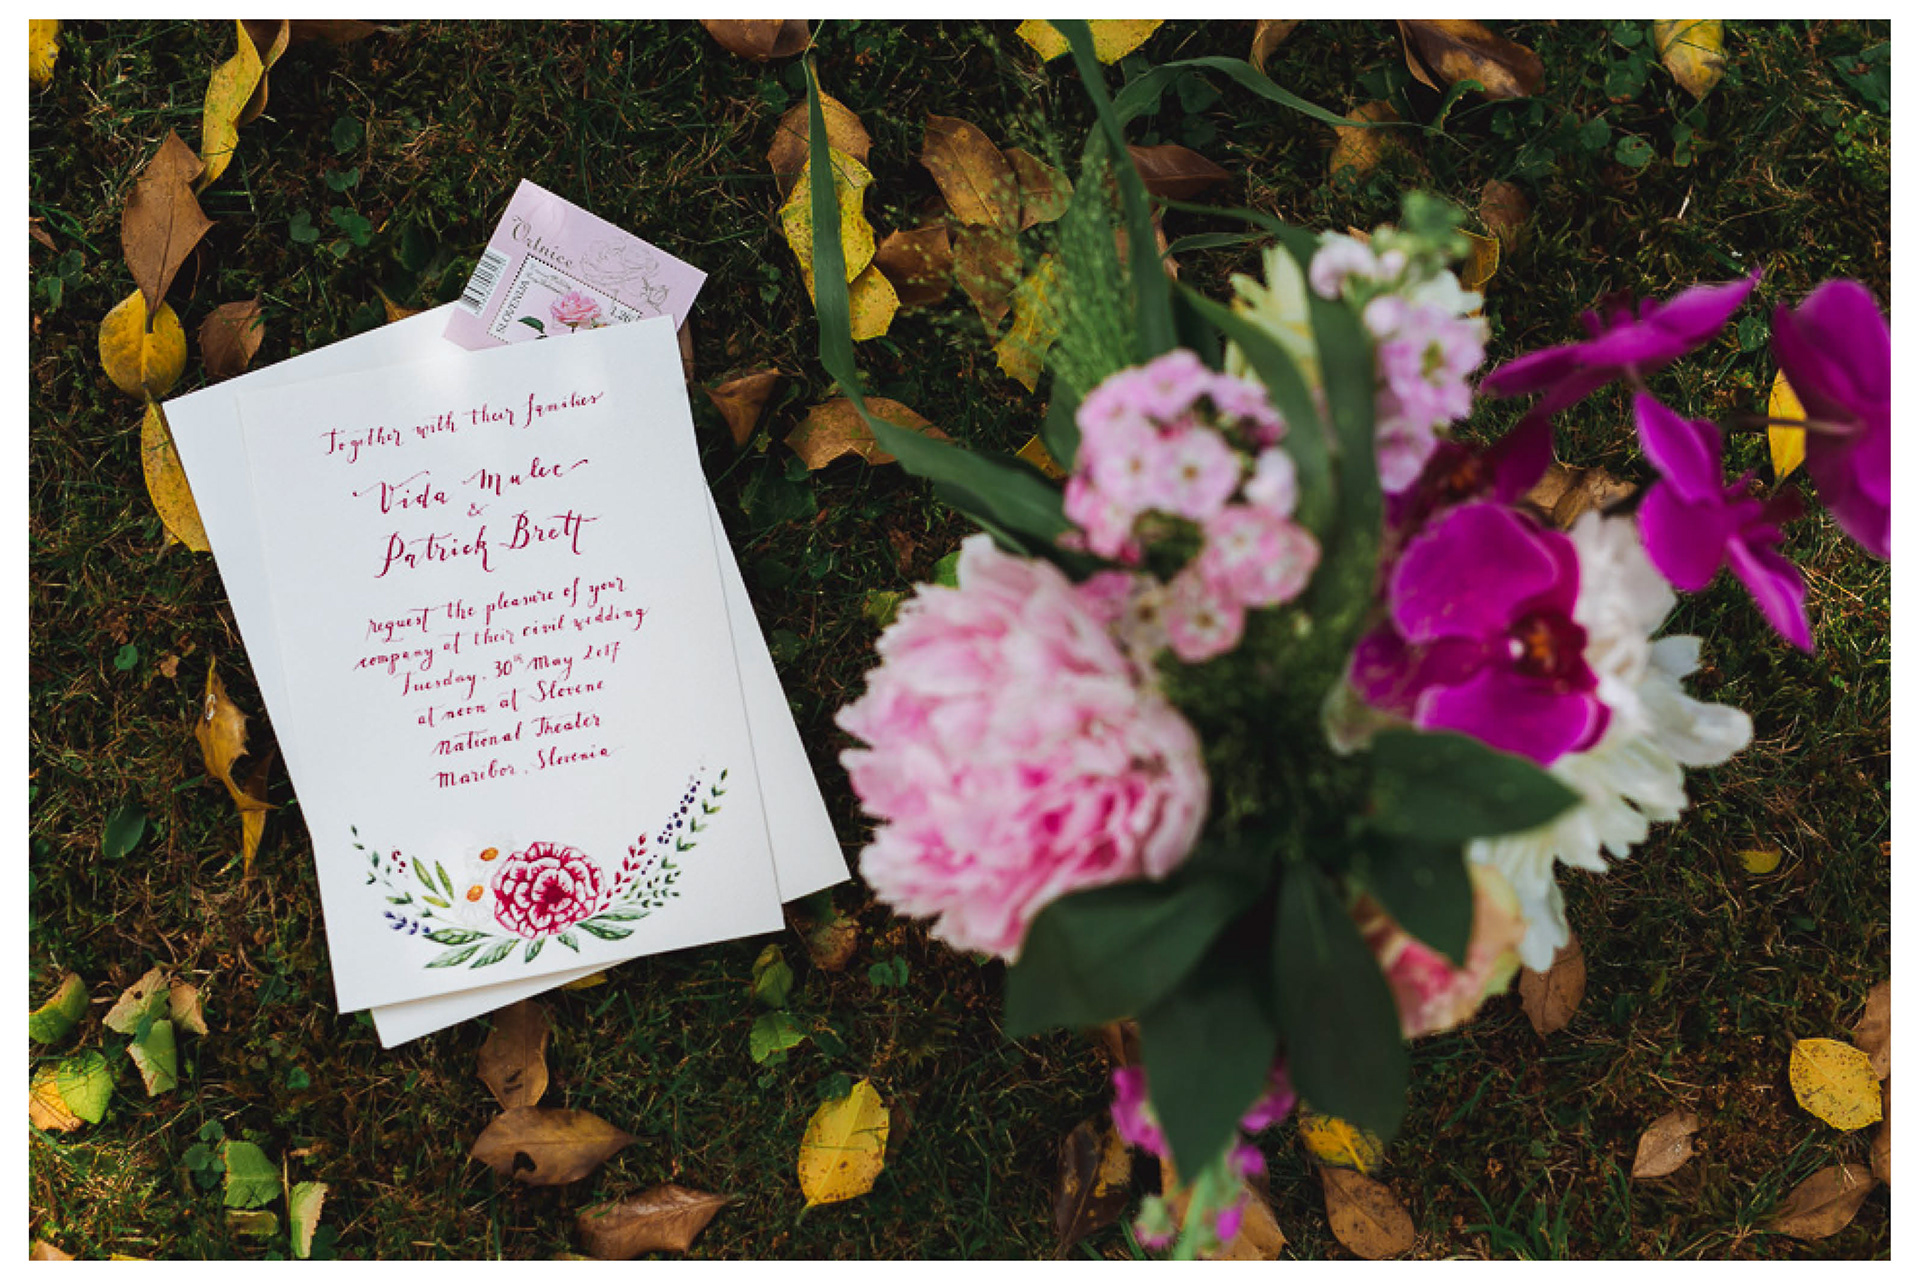 Vrtnice
SLOVENIJA
Together with their families
Vida Mulec
&
Patrick Brett
request the pleasure of your
company at their civil wedding
Tuesday, 30th May 2017
at noon at Slovene
National Theater
Maribor, Slovenia